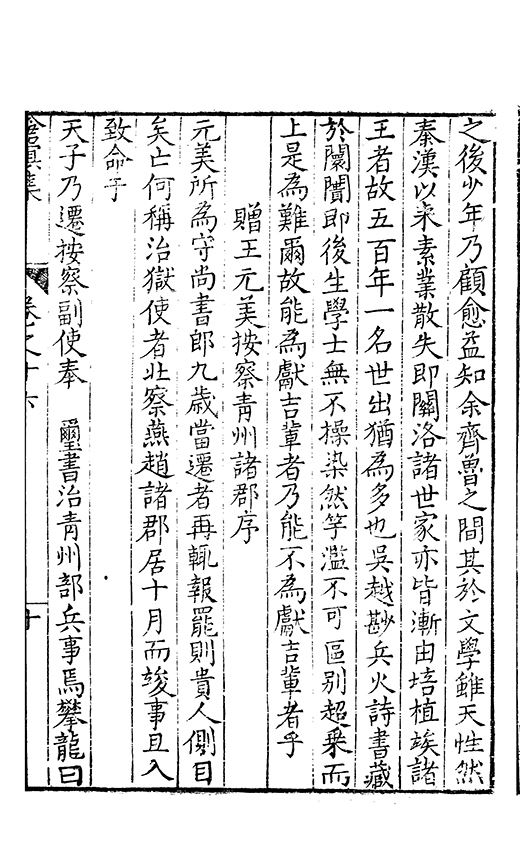 之後少年乃顧愈益知余齊魯之間其於文學雖天性然
秦漢以來素業散失即關洛諸世家亦皆漸由培植竢諸
王者故五百年一名世出猶為多也吳越尠兵火詩書藏
於闤闠即後生學士無不操染然竽濫不可區别超乗而
上是為難爾故能為獻吉輩者乃能不為獻吉輩者乎
贈王元美按察青州諸郡序
元美所為守尚書郎九歲當遷者再輒報罷則貴人側目
矣亡何稱治獄使者北察燕趙諸郡居十月而竣事且入
致命于
天子乃遷按察副使奉 璽書治青州部兵事焉攀龍曰
滄溟集 卷之十六 十